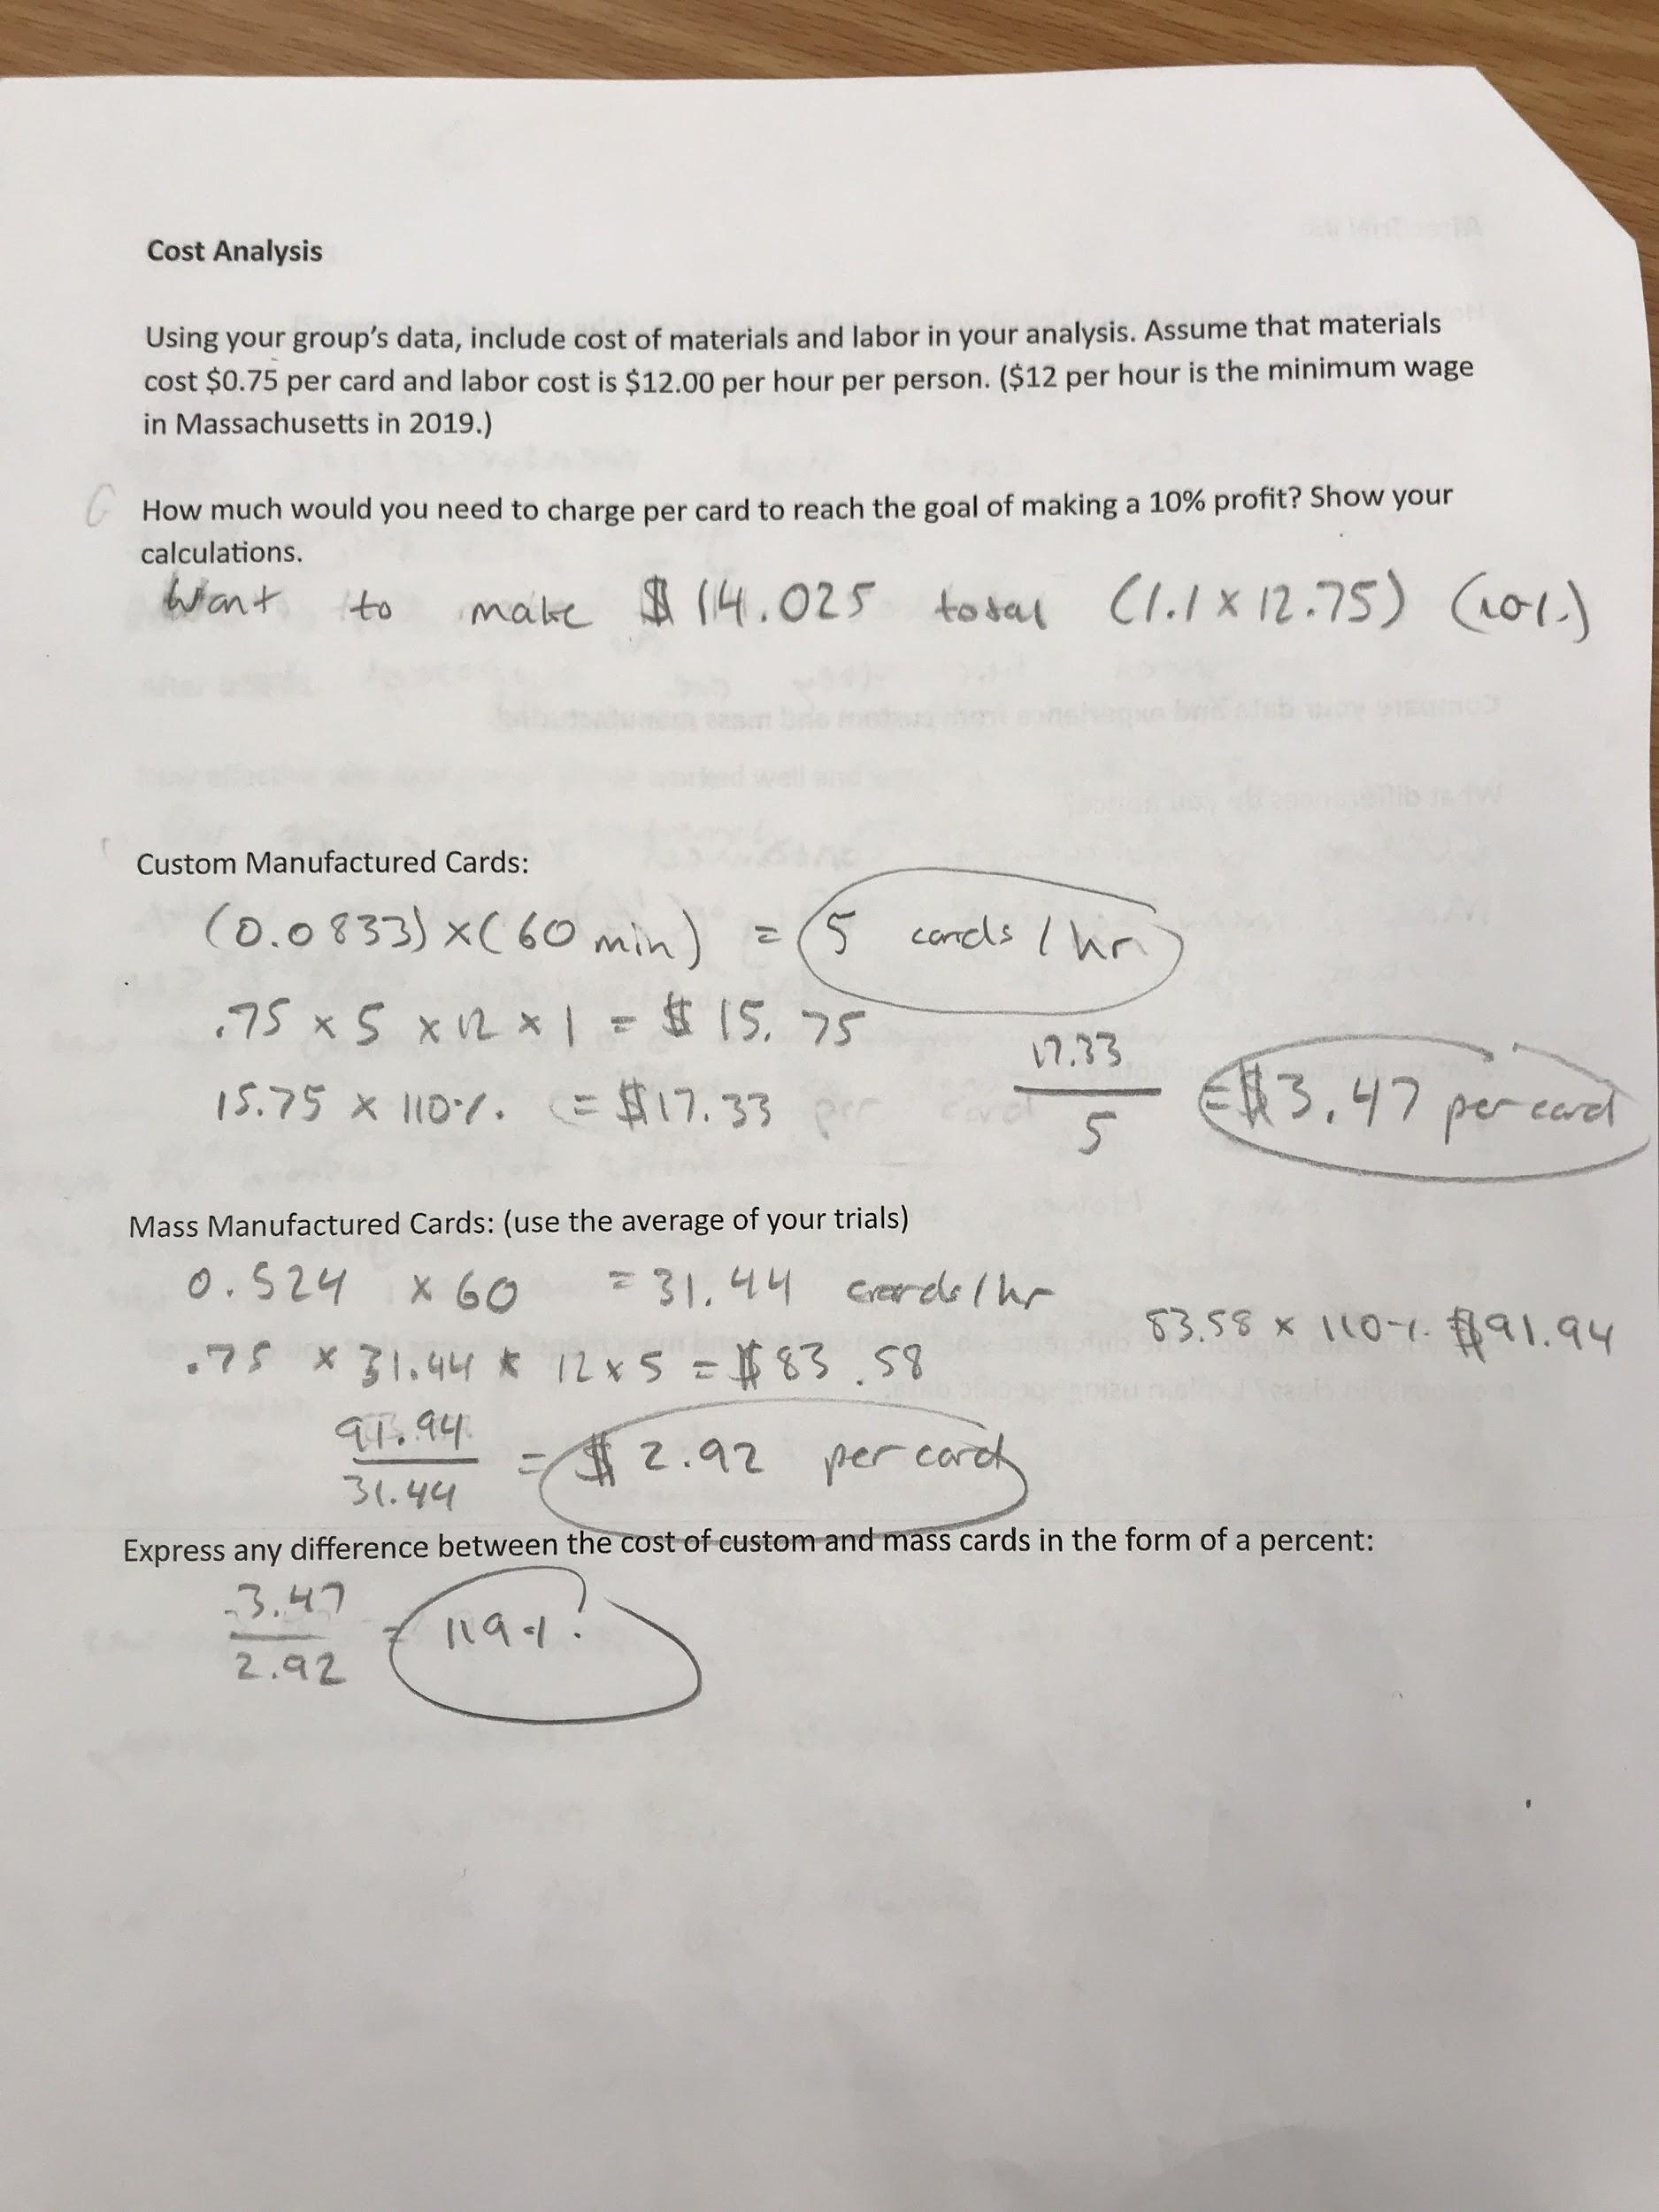 Cost Analysis
Using your group's data, include cost of materials and labor in your analysis. Assume that materials
cost $0.75 per card and labor cost is $12.00 per hour per person. ($12 per hour is the minimum wage
in Massachusetts in 2019.)
How much would you need to charge per card to reach the goal of making a 10% profit? Show your
calculations.
Want to make $14.025 total (1.1 x 12.75) (10%)
Custom Manufactured Cards:
(0.0833) x (60 min) = 5 cards / hr
.75 x 5 x 12 x 1 = $15.75
15.75 x 110% = $17.33 per card
17.33
5
= $3.47 per card
Mass Manufactured Cards: (use the average of your trials)
0.524 x 60 = 31.44 cards/hr
.75 x 31.44 x 12 x 5 = $83.58
83.58 x 110% $91.94
91.94
31.44
= $2.92 per card
Express any difference between the cost of custom and mass cards in the form of a percent:
3.47
2.92
= 119%